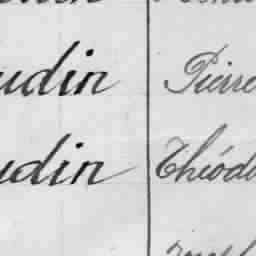 udin Pierre
udin Théodo